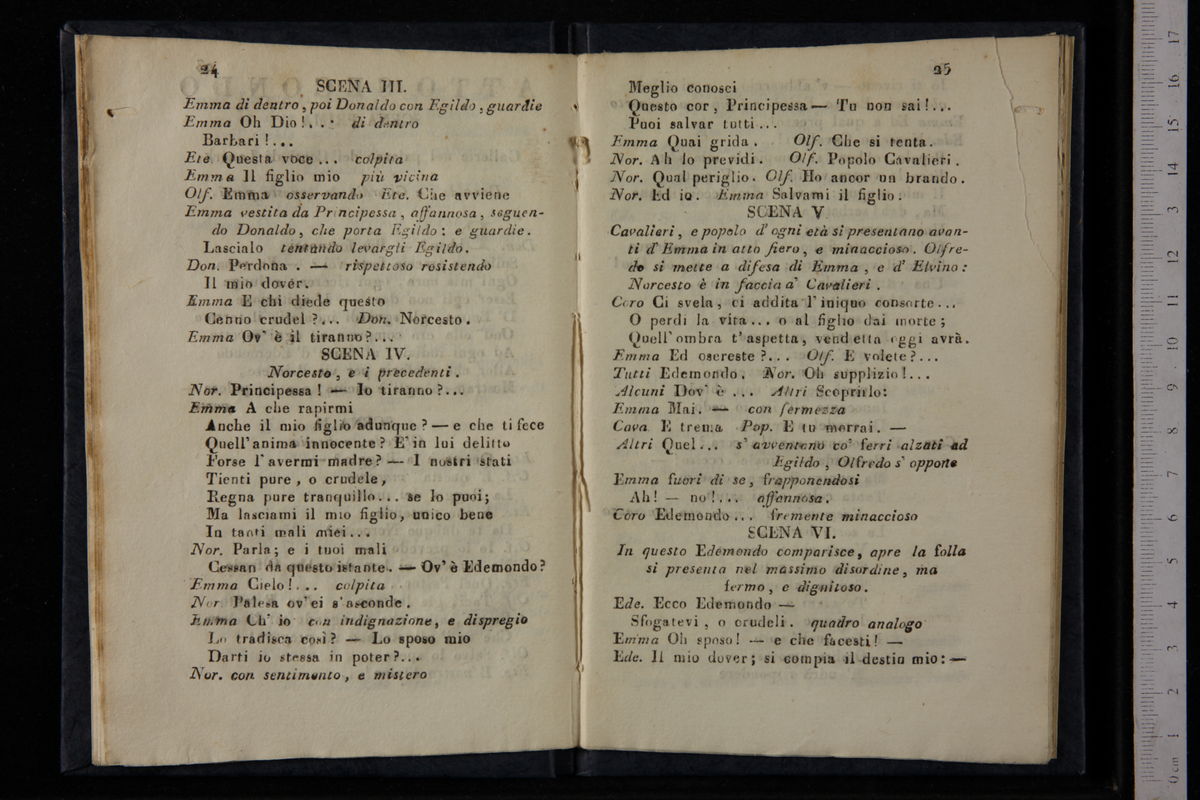 24
SCENA III.
Emma di dentro, poi Donaldo con Egildo, guardie
Emma Oh Dio!... di dentro
Barbari!...
Ete. Questa voce... colpita
Emma Il figlio mio più vicina
Olf. Emma osservando Ete. Che avviene
Emma vestita da Principessa, affannosa, seguen-
do Donaldo, che porta Egildo: e guardie.
Lascialo tentando levargli Egildo.
Don. Perdona. — rispettoso resistendo
Il mio dover.
Emma E chi diede questo
Cenno crudel?... Don. Norcesto.
Emma Ov' è il tiranno?...
SCENA IV.
Norcesto, e i precedenti.
Nor. Principessa! — Io tiranno?...
Emma A che rapirmi
Anche il mio figlio adunque? — e che ti fece
Quell'anima innocente? E' in lui delitto
Forse l'avermi madre? — I nostri stati
Tienti pure, o crudele,
Regna pure tranquillo... se lo puoi;
Ma lasciami il mio figlio, unico bene
In tanti mali miei...
Nor. Parla; e i tuoi mali
Cessan da questo istante. — Ov' è Edemondo?
Emma Cielo!... colpita
Nor Palesa ov'ei s'asconde.
Emma Ch' io con indignazione, e dispregio
Lo tradisca così? — Lo sposo mio
Darti io stessa in poter?...
Nor. con sentimento, e mistero
25
Meglio conosci
Questo cor, Principessa — Tu non sai!...
Puoi salvar tutti...
Emma Quai grida. Olf. Che si tenta.
Nor. Ah lo previdi. Olf. Popolo Cavalieri.
Nor. Qual periglio. Olf. Ho ancor un brando.
Nor. Ed io. Emma Salvami il figlio.
SCENA V
Cavalieri, e popolo d' ogni età si presentano avan-
ti d' Emma in atto fiero, e minaccioso. Olfre-
do si mette a difesa di Emma, e d' Elvino:
Norcesto è in faccia a' Cavalieri.
Coro Ci svela, ci addita l'iniquo consorte...
O perdi la vita... o al figlio dai morte;
Quell'ombra t'aspetta, vendetta oggi avrà.
Emma Ed osereste?... Olf. E volete?...
Tutti Edemondo. Nor. Oh supplizio!...
Alcuni Dov' è... Altri Scoprirlo:
Emma Mai. — con fermezza
Cava E trema Pop. E tu morrai. —
Altri Quel... s' avventano co' ferri alzati ad
Egildo, Olfredo s' oppone
Emma fuori di se, frapponendosi
Ah! — no!... affannosa.
Coro Edemondo... fremente minaccioso
SCENA VI.
In questo Edemondo comparisce, apre la folla
si presenta nel massimo disordine, ma
fermo, e dignitoso.
Ede. Ecco Edemondo —
Sfogatevi, o crudeli. quadro analogo
Emma Oh sposo! — e che facesti! —
Ede. Il mio dover; si compia il destin mio: —
17
16
15
14
13
12
11
10
9
8
7
6
5
4
3
2
1
0 cm